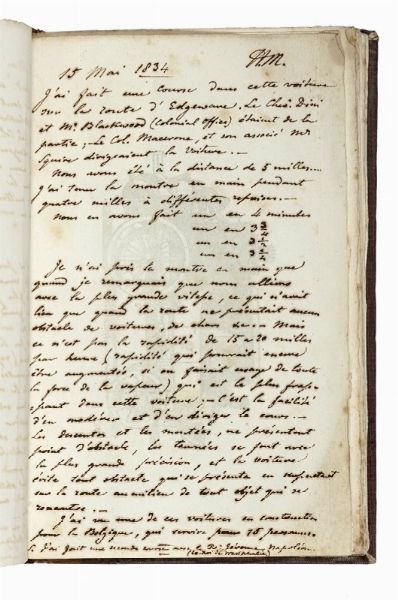 15 Mai 1834
J'ai fait une course dans cette voiture
sur la route d'Edgeware. Le Chev. Dini
et Mr. Blackwood (Colonial Office) étaient de la
partie; Le Col. Macerone, et son associé Mr
Squire dirigeaient la voiture. —
Nous avons été à la distance de 5 milles...
J'ai tenu la montre en main pendant
quatre milles à différentes reprises. —
Nous en avons fait un en 4 minutes
un en 3 3/4
un en 3 1/2
un en 3 1/4
Je n'ai pris la montre en main que
quand je remarquais que nous allions
avec la plus grande vitesse, ce qui n'avait
lieu que quand la route ne présentait aucun
obstacle de voitures, de chars &c. — Mais
ce n'est pas la rapidité de 15 à 20 milles
par heure (rapidité qui pouvait encore
être augmentée, si on faisait usage de toute
la force de la vapeur) qui est la plus frap-
pant dans cette voiture; c'est la facilité
d'en modérer et d'en diriger le cours. —
Les descentes et les montées, ne présentent
point d'obstacle, les tournées se font avec
la plus grande précision, et la voiture
évite tout obstacle qui se présente en
sur la route au milieu de tout objet qui se
rencontre. —
J'ai vu une de ces voitures en construction
pour la Belgique, qui servira pour 16 personnes.
J'ai fait une seconde course avec le Pce Jérôme Napoléon
(ex-Roi de Westphalie)